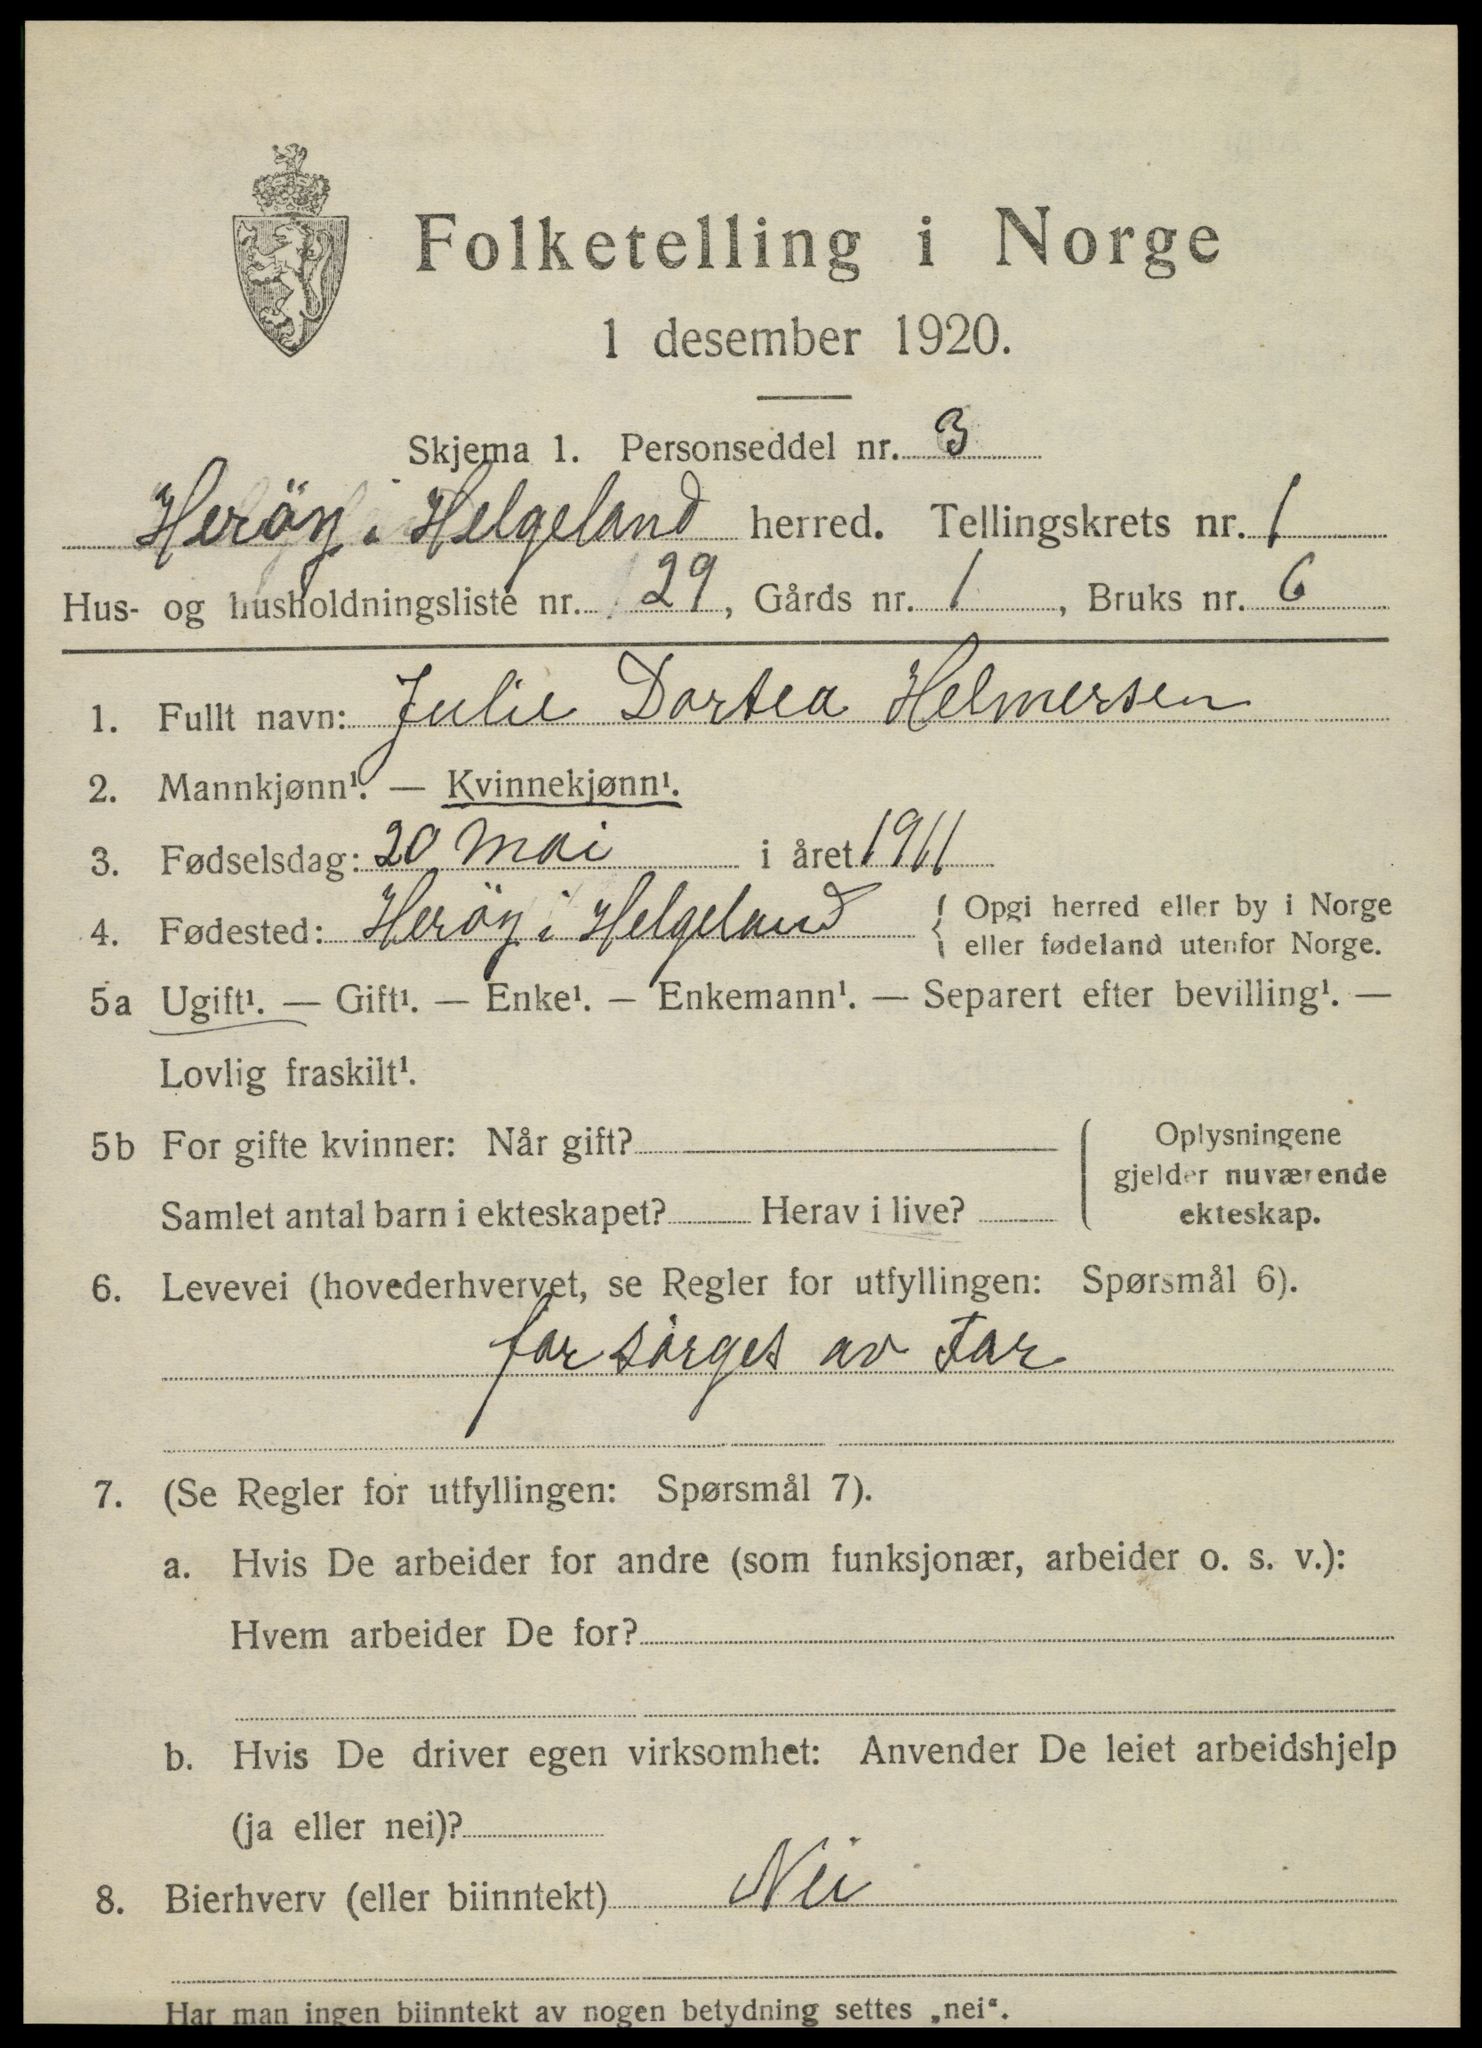 Folketelling i Norge
1 desember 1920.
Skjema 1. Personseddel nr. 3
Heröy i Helgeland herred. Tellingskrets nr. 1
Hus- og husholdningsliste nr. 29, Gårds nr. 1, Bruks nr. 6
1. Fullt navn: Julie Dortea Helmersen
2. Mannkjønn¹. — Kvinnekjønn¹.
3. Fødselsdag: 20 Mai i året 1911
4. Fødested: Heröy i Helgeland { Opgi herred eller by i Norge
eller fødeland utenfor Norge.
5a Ugift¹. — Gift¹. — Enke¹. — Enkemann¹. — Separert efter bevilling¹. —
Lovlig fraskilt¹.
5b For gifte kvinner: Når gift?
Samlet antal barn i ekteskapet? Herav i live?
Oplysningene
gjelder nuværende
ekteskap.
6. Levevei (hovederhvervet, se Regler for utfyllingen: Spørsmål 6).
forsörges av Far
7. (Se Regler for utfyllingen: Spørsmål 7).
a. Hvis De arbeider for andre (som funksjonær, arbeider o. s. v.):
Hvem arbeider De for?
b. Hvis De driver egen virksomhet: Anvender De leiet arbeidshjelp
(ja eller nei)?
8. Bierhverv (eller biinntekt) Nei
Har man ingen biinntekt av nogen betydning settes „nei“.